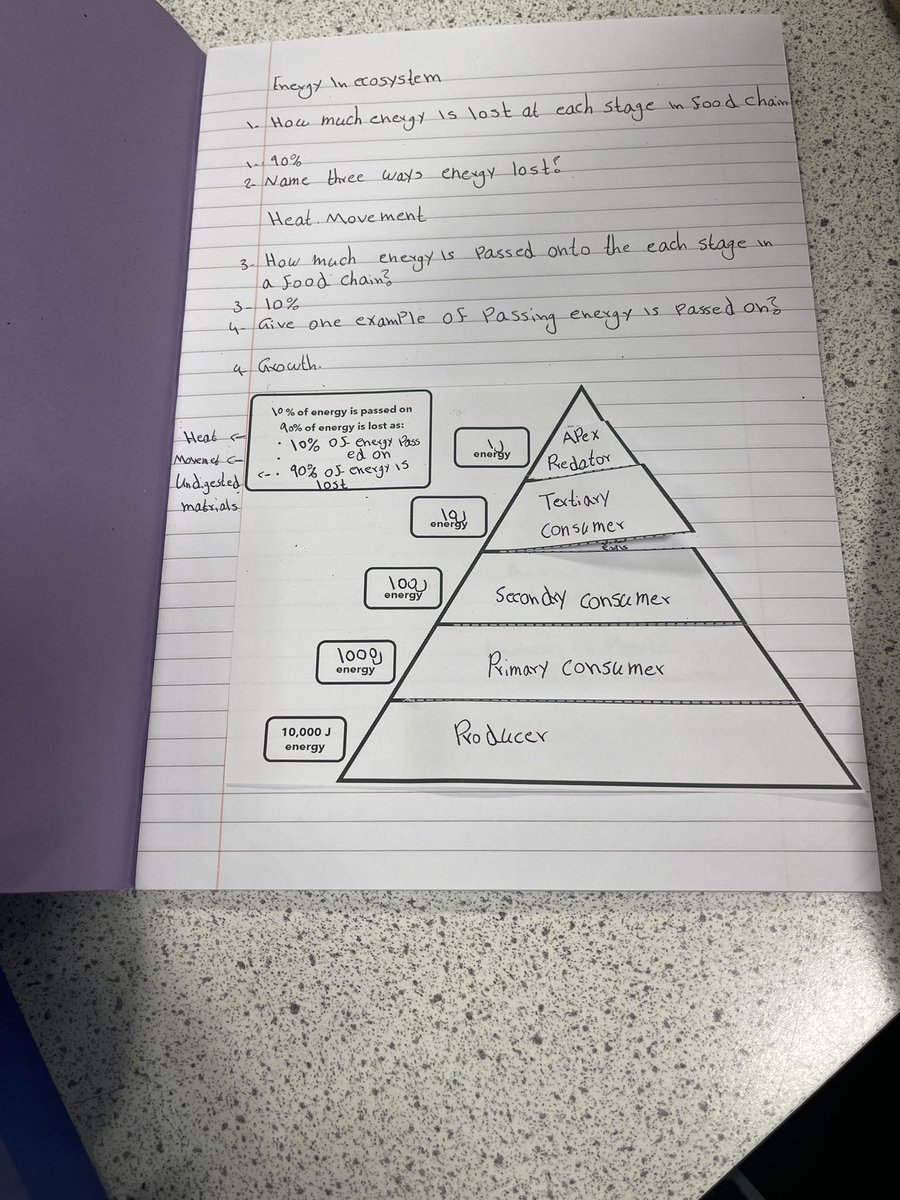 Energy In ecosystem
1- How much energy is lost at each stage in food chain
1- 90%
2- Name three ways energy lost?
Heat. Movement
3- How much energy is Passed onto the each stage in
a food chain?
3- 10%
4- Give one example of Passing energy is Passed on?
4 Growth.
10% of energy is passed on
90% of energy is lost as:
• 10% of energy Pass
ed on
<-• 90% of energy is
lost
Heat <-
Movemet <-
Undigested
matirals
1J
energy
APex
Redator
10J
energy
Tertiary
Consumer
100J
energy
Secondry consumer
1000J
energy
Primary consumer
10,000 J
energy
Producer